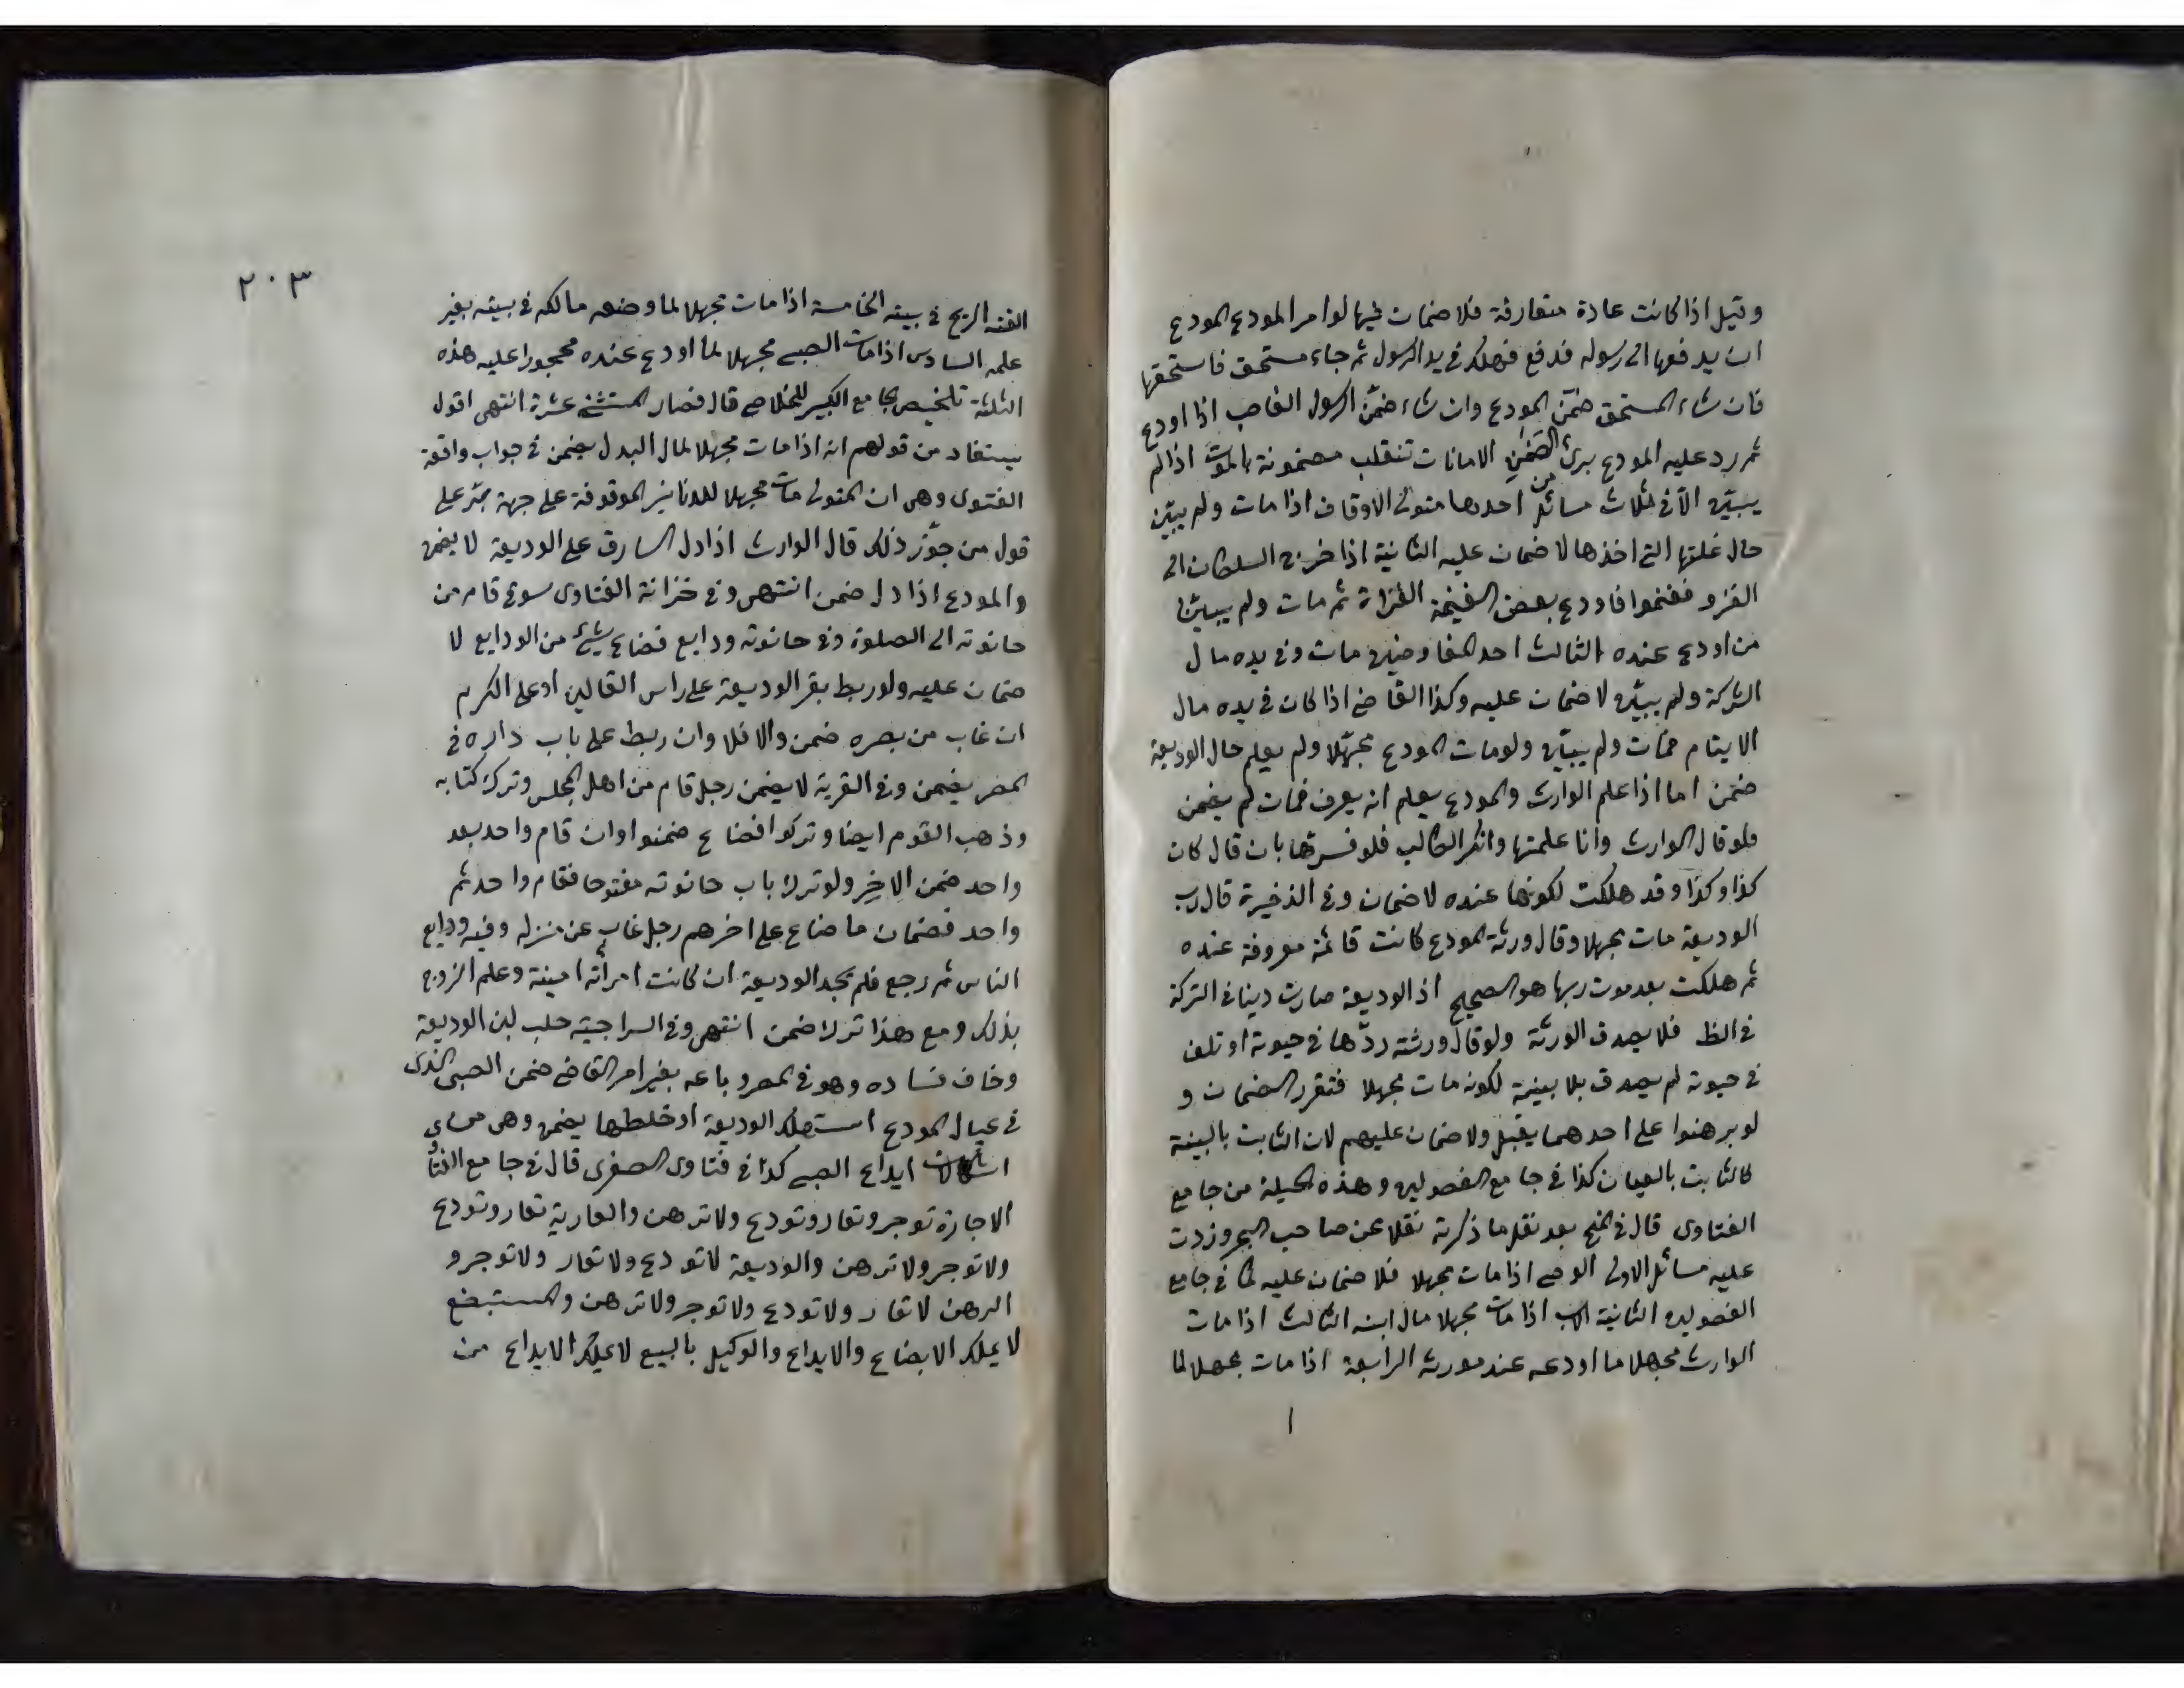 وقيل اذا كانت عادة متعارفة فلا ضمان فيها لو امر المودع المودع
ان يدفعها الى رسوله فدفع فهلك في يد الرسول ثم جاء مستحق فاستحقها
فان شاء المستحق ضمّن المودع وان شاء ضمّن الرسول الغاصب اذا اودع
ثم رد عليه المودع برئ الامانات تنقلب مضمونة بالموت اذا لم
يبيّن الّا في ثلاث مسائل احدها متولى الاوقاف اذا مات ولم يبيّن
حال غلتها التي اخذها لا ضمان عليه الثانية اذا خرج السلطان الى
الغزو فغنموا فاودع بعض الغنيمة الغزاة ثم مات ولم يبيّن
من اودع عنده الثالث احد المفاوضين مات وفي يده مال
الشركة ولم يبيّن لا ضمان عليه وكذا القاضي اذا كان في يده مال
الايتام فمات ولم يبيّن ولو مات المودع مجهّلا ولم يعلم حال الوديعة
ضمن اما اذا علم الوارث والمودع يعلم انه يعرف فمات لم يضمن
فلو قال الوارث وانا علمتها وانكر الطالب فلو فسرتها بان قال كان
كذا وكذا وقد هلكت لكونها عنده لا ضمان وفي الذخيرة قال رب
الوديعة مات مجهلا وقال ورثة المودع كانت قائمة معروفة عنده
ثم هلكت بعد موت ربها هو الصحيح اذ الوديعة صارت دينا في التركة
في الظ فلا يصدق الورثة ولو قال ورثته ردّها في حيوته او تلف
في حيوته لم يصدق بلا بينة لكونه مات مجهلا فتقرر الضمان و
لو برهنوا على احدهما يقبل ولا ضمان عليهم لان الثابت بالبينة
كالثابت بالعيان كذا في جامع الفصولين وهذه الحيلة من جامع
الفتاوى قال في المنح بعد نقل ما ذكرته نقلا عن صاحب البحر وزدت
عليه مسائل الاولى الوصي اذا مات مجهلا فلا ضمان عليه كما في جامع
الفصولين الثانية الاب اذا مات مجهلا مال ابنه الثالث اذا مات
الوارث مجهلا ما اودعه عند مورثه الرابعة اذا مات مجهلا لما
٢٠٣
القته الريح في بيته الخامسة اذا مات مجهلا لما وضعه مالكه في بيته بغير
علمه السادس اذا مات الصبي مجهلا لما اودع عنده محجورا عليه هذه
الثلثة تلخيص الجامع الكبير للخلاصي قال فصار المستثنى عشرة انتهى اقول
يستفاد من قولهم انه اذا مات مجهلا لمال البدل يضمن في جواب واقعة
الفتوى وهي ان المتولى مات مجهلا للدنانير الموقوفة على جهة على
قول من جوّز ذلك قال الوارث اذا دل السارق على الوديعة لا يضمن
والمودع اذا دل ضمن انتهى وفي خزانة الفتاوى سوقي قام من
حانوته الى الصلوة وفي حانوته ودايع فضاع شيء من الودايع لا
ضمان عليه ولو ربط بقر الوديعة على راس او على الكرم
ان غاب من بصره ضمن والا فلا وان ربط على باب داره في
المصر يضمن وفي القرية لا يضمن رجل قام من اهل المجلس وترك كتابه
وذهب القوم ايضا وتركوا فضاع ضمنوا وان قام واحد بعد
واحد ضمن الاخِر ولو ترك باب حانوته مفتوحا فقام واحد ثم
واحد فضمان ما ضاع على اخرهم رجل غاب عن منزله وفيه ودايع
الناس ثم رجع فلم يجد الوديعة ان كانت امرأته امينة وعلم الزوج
بذلك ومع هذا ترك ضمن انتهى وفي السراجية حلب لبن الوديعة
وخاف فساده وهو في المصر وباعه بغير امر القاضي ضمن الصبى الذى
في عيال المودع استهلك الوديعة او خلطها يضمن وهي من
ايداع الصبي كذا في فتاوى الصغرى قال في جامع الفتاوى
الاجارة توجر وتعار وتودع ولا ترهن والعارية تعار وتودع
ولا توجر ولا ترهن والوديعة لا تودع ولا تعار ولا توجر و
الرهن لا تعار ولا تودع ولا توجر ولا ترهن والمستبضع
لا يملك الابضاع والايداع والوكيل بالبيع لا يملك الايداع ممن